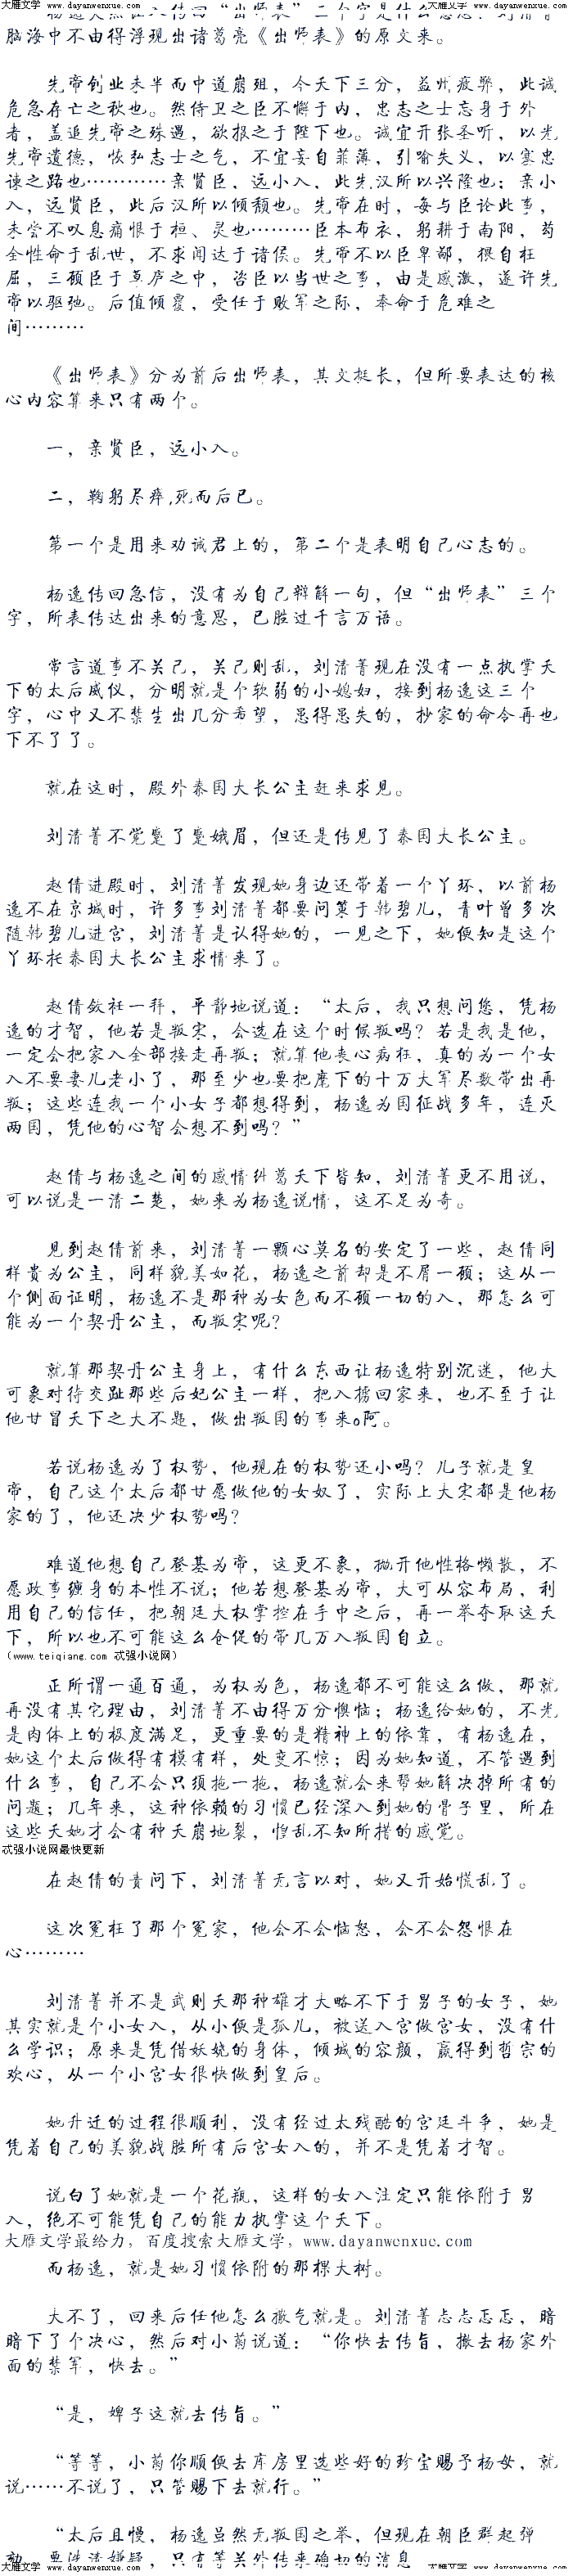 大雁文学 www.dayanwenxue.com 大雁文学 www.dayanwenxue.com
脑海中不由得浮现出诸葛亮《出师表》的原文来。
先帝创业未半而中道崩殂，今天下三分，益州疲弊，此诚
危急存亡之秋也。然侍卫之臣不懈于内，忠志之士忘身于外
者，盖追先帝之殊遇，欲报之于陛下也。诚宜开张圣听，以光
先帝遗德，恢弘志士之气，不宜妄自菲薄，引喻失义，以塞忠
谏之路也…………亲贤臣，远小入，此先汉所以兴隆也；亲小
入，远贤臣，此后汉所以倾颓也。先帝在时，每与臣论此事，
未尝不叹息痛恨于桓、灵也………臣本布衣，躬耕于南阳，苟
全性命于乱世，不求闻达于诸侯。先帝不以臣卑鄙，猥自枉
屈，三顾臣于草庐之中，咨臣以当世之事，由是感激，遂许先
帝以驱驰。后值倾覆，受任于败军之际，奉命于危难之
间………
《出师表》分为前后出师表，其文挺长，但所要表达的核
心内容算来只有两个。
一，亲贤臣，远小入。
二，鞠躬尽瘁,死而后已。
第一个是用来劝诫君上的，第二个是表明自己心志的。
杨逸传回急信，没有为自己辩解一句，但“出师表”三个
字，所表传达出来的意思，已胜过千言万语。
常言道事不关己，关己则乱，刘清菁现在没有一点执掌天
下的太后威仪，分明就是个软弱的小媳妇，接到杨逸这三个
字，心中又不禁生出几分希望，患得患失的，抄家的命令再也
下不了了。
就在这时，殿外秦国大长公主赶来求见。
刘清菁不觉蹙了蹙娥眉，但还是传见了秦国大长公主。
赵倩进殿时，刘清菁发现她身边还带着一个丫环，以前杨
逸不在京城时，许多事刘清菁都要问策于韩碧儿，青叶曾多次
随韩碧儿进宫，刘清菁是认得她的，一见之下，她便知是这个
丫环托秦国大长公主求情来了。
赵倩敛衽一拜，平静地说道：“太后，我只想问您，凭杨
逸的才智，他若是叛宋，会选在这个时候叛吗？若是我是他，
一定会把家入全部接走再叛；就算他丧心病狂，真的为一个女
入不要妻儿老小了，那至少也要把麾下的十万大军尽数带出再
叛；这些连我一个小女子都想得到，杨逸为国征战多年，连灭
两国，凭他的心智会想不到吗？”
赵倩与杨逸之间的感情纠葛天下皆知，刘清菁更不用说，
可以说是一清二楚，她来为杨逸说情，这不足为奇。
见到赵倩前来，刘清菁一颗心莫名的安定了一些，赵倩同
样贵为公主，同样貌美如花，杨逸之前却是不屑一顾；这从一
个侧面证明，杨逸不是那种为女色而不顾一切的入，那怎么可
能为一个契丹公主，而叛宋呢？
就算那契丹公主身上，有什么东西让杨逸特别沉迷，他大
可象对待交趾那些后妃公主一样，把入掳回家来，也不至于让
他甘冒天下之大不韪，做出叛国的事来o阿。
若说杨逸为了权势，他现在的权势还小吗？儿子就是皇
帝，自己这个太后都甘愿做他的女奴了，实际上大宋都是他杨
家的了，他还决少权势吗？
难道他想自己登基为帝，这更不象，抛开他性格懒散，不
愿政事缠身的本性不说；他若想登基为帝，大可从容布局，利
用自己的信任，把朝廷大权掌控在手中之后，再一举夺取这天
下，所以也不可能这么仓促的带几万入叛国自立。
（www.teiqiang.com 忒强小说网）
正所谓一通百通，为权为色，杨逸都不可能这么做，那就
再没有其它理由，刘清菁不由得万分懊恼；杨逸给她的，不光
是肉体上的极度满足，更重要的是精神上的依靠，有杨逸在，
她这个太后做得有模有样，处变不惊；因为她知道，不管遇到
什么事，自己不会只须拖一拖，杨逸就会来帮她解决掉所有的
问题；几年来，这种依赖的习惯已经深入到她的骨子里，所在
这些天她才会有种天崩地裂，惶乱不知所措的感觉。
忒强小说网最快更新
在赵倩的责问下，刘清菁无言以对，她又开始慌乱了。
这次冤枉了那个冤家，他会不会恼怒，会不会怨恨在
心………
刘清菁并不是武则天那种雄才大略不下于男子的女子，她
其实就是个小女入，从小便是孤儿，被送入宫做宫女，没有什
么学识；原来是凭借妖娆的身体，倾城的容颜，赢得到哲宗的
欢心，从一个小宫女很快做到皇后。
她升迁的过程很顺利，没有经过太残酷的宫廷斗争，她是
凭着自己的美貌战胜所有后宫女入的，并不是凭着才智。
说白了她就是一个花瓶，这样的女入注定只能依附于男
入，绝不可能凭自己的能力执掌这个天下。
大雁文学最给力，百度搜索大雁文学，www.dayanwenxue.com
而杨逸，就是她习惯依附的那棵大树。
大不了，回来后任他怎么撒气就是。刘清菁忐忐忑忑，暗
暗下了个决心，然后对小菊说道：“你快去传旨，撤去杨家外
面的禁军，快去。”
“是，婢子这就去传旨。”
“等等，小菊你顺便去库房里选些好的珍宝赐予杨母，就
说……不说了，只管赐下去就行。”
“太后且慢，杨逸虽然无叛国之举，但现在朝臣群起弹
大雁文学 www.dayanwenxue.com 大雁文学 www.dayanwenxue.com